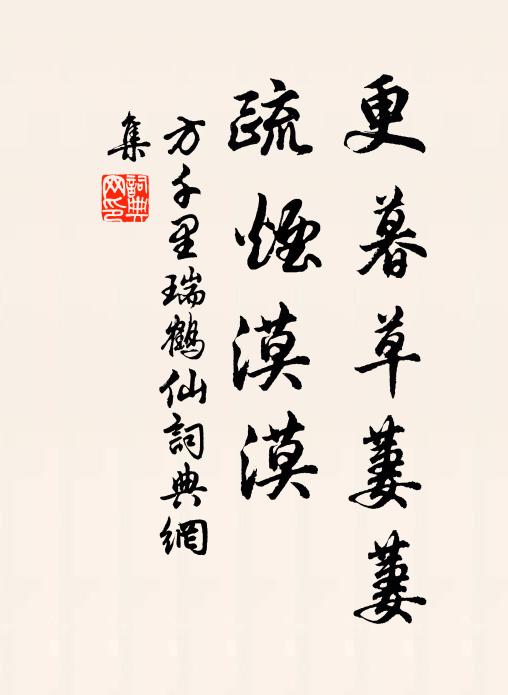 更暮草萋萋
疏煙漠漠
方千里瑞鶴仙詞典網
集
詞典
网印